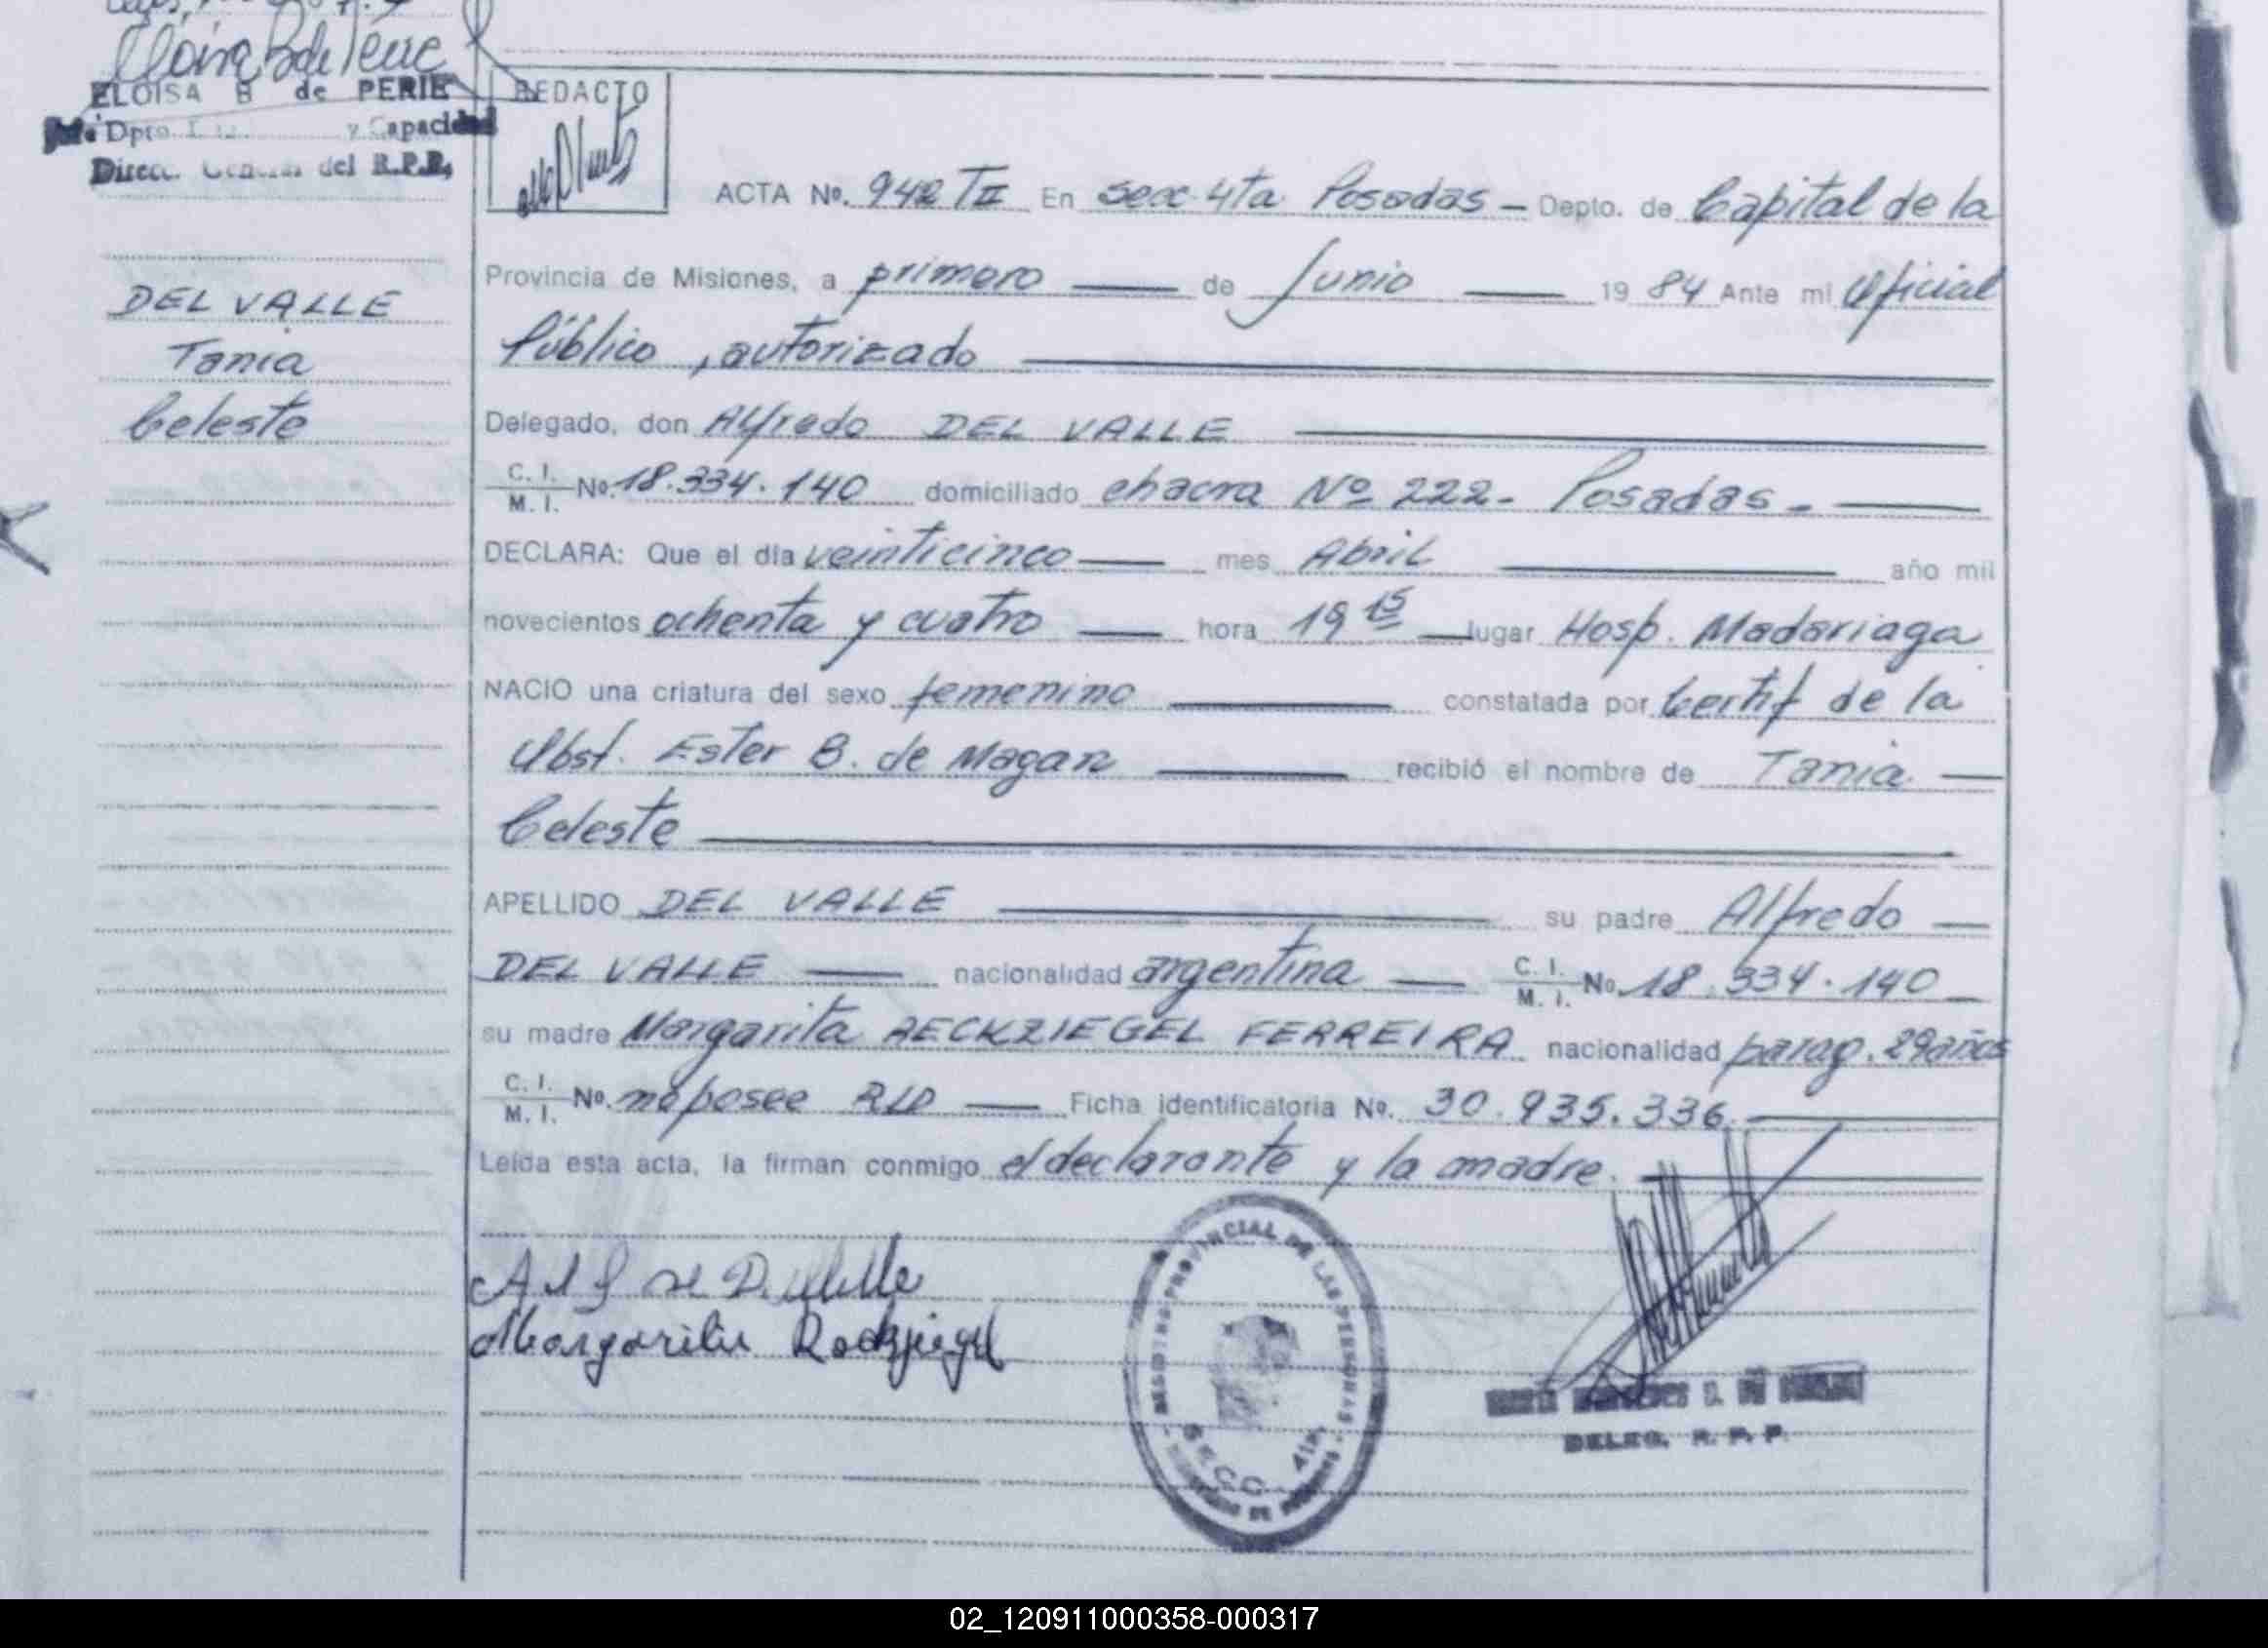 ELOISA B de PERIE
Dpto. y Capacidad
Direcc. General del R.P.P.
REDACTO
DEL VALLE
Tania
Celeste
ACTA No. 942 TII En secc. 4ta Posadas - Depto. de Capital de la
Provincia de Misiones, a primero de Junio 1984 Ante mi Oficial
Público, autorizado
Delegado, don Alfredo DEL VALLE
C. I. M. I. No. 18.334.140 domiciliado chacra Nº 222 - Posadas -
DECLARA: Que el día veinticinco mes Abril año mil
novecientos ochenta y cuatro hora 19 15 lugar Hosp. Madariaga
NACIO una criatura del sexo femenino constatada por Certif de la
Obst. Ester B. de Magan recibió el nombre de Tania
Celeste
APELLIDO DEL VALLE su padre Alfredo
DEL VALLE nacionalidad argentina C. I. M. I. No. 18.334.140
su madre Margarita RECKZIEGEL FERREIRA nacionalidad parag. 29 años
C. I. M. I. No. no posee Ficha identificatoria No. 30.935.336
Leída esta acta, la firman conmigo el declarante y la madre.
Margarita Reckziegel
REGISTRO PROVINCIAL DE LAS PERSONAS
SECC. 4ta.
DELEG. R. P. P.
02_120911000358-000317